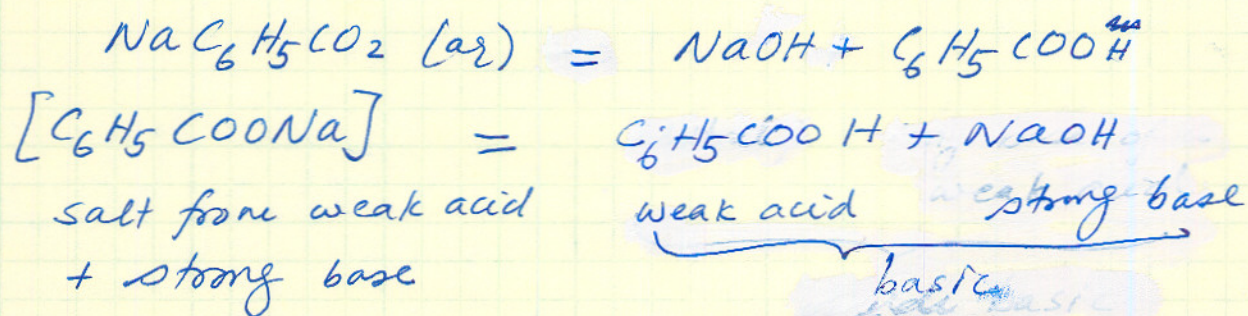 NaC6H5CO2 (aq) = NaOH + C6H5COOH
[C6H5COONa] = C6H5COOH + NaOH
salt from weak acid weak acid strong base
+ strong base basic